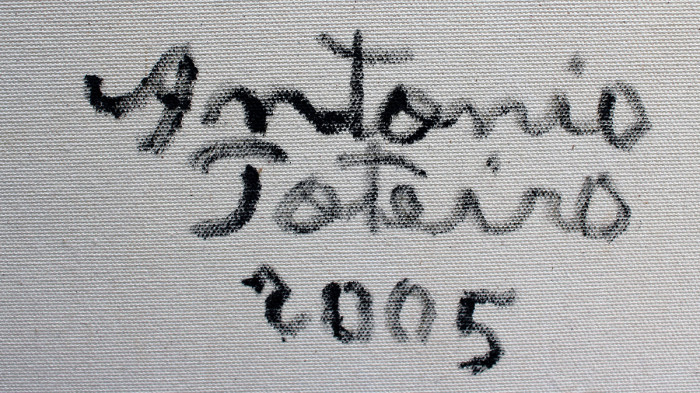 Antonio
Poteiro
2005